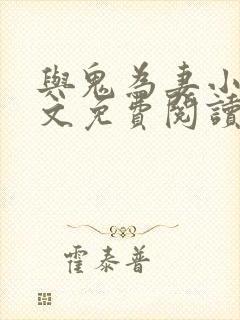 與鬼為妻小
文免費閱讀
霍泰普